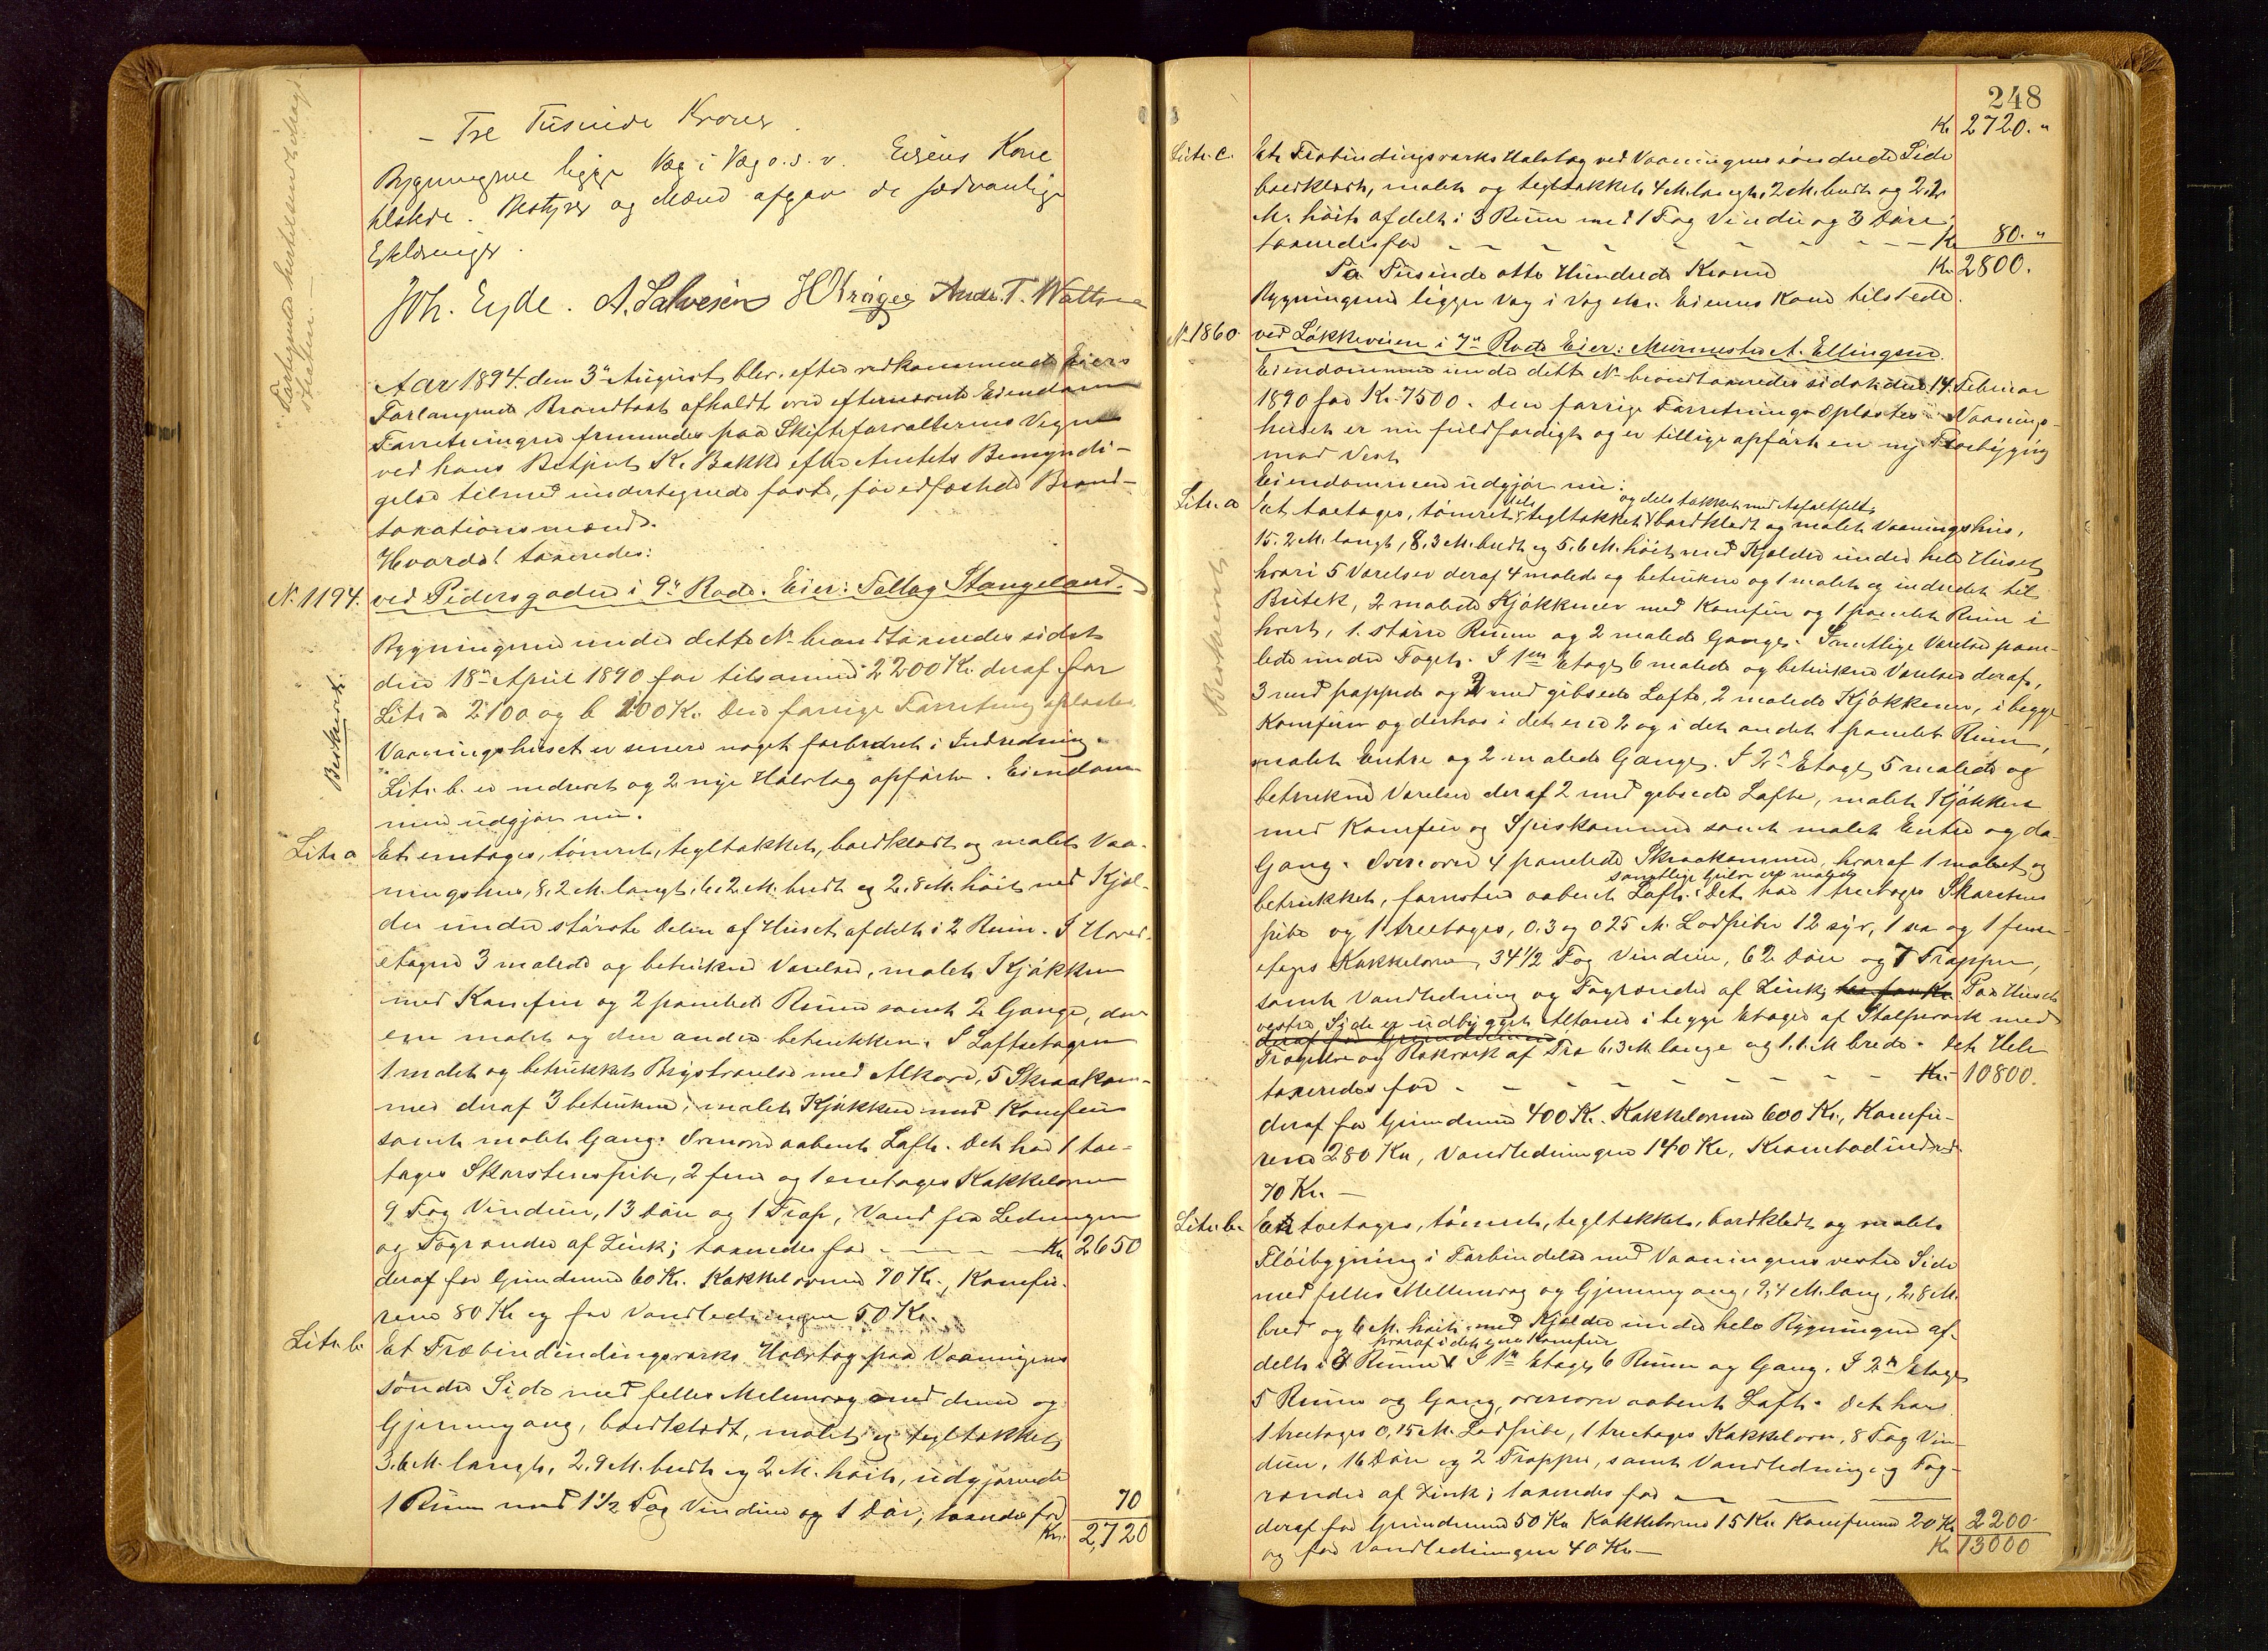 - Tre Tusinde Kroner.
Bygningene ligge Væg i Væg o.s.v. Eierens Kone
tilstede. Bestyrer og Mænd afgav de sædvanlige
Erklæringer.
Joh. Eyde. A. Salvesen H Krøger Andr. T. Watne
Aar 1894 den 3die August blev efter vedkommende Eiers
Forlangende Brandtaxt afholdt over efternævnte Eiendomme
Forretningen fremmedes paa Skifteforvalterens Vegne
ved hans Betjent K. Bakke efter Amtets Bemyndi-
gelse tilmed undertegnede faste, før edfæstede Brand-
taxationsmænd.
Hvorda taxeredes:
N. 1194. ved Pedersgaden i 9de Rode. Eier: Tallag Stangeland.
Bygningerne under dette No brandtaxeredes sidst
den 18de April 1890 for tilsammen 2200 Kr. deraf for
Litr a 2100 og b 100 Kr. Den forrige Forretning oplæstes
Vaaningshuset er senere noget forbedret i Indredning.
Bestkrevet.
Litr. b. er nedrevet og 2 nye Halvtag opførte. Eiendom-
men udgjør nu.
Litr a Et enetages, tømret, tegltækket, bordklædt og malet Vaa-
ningshus, 8,2 M. langt, 6,2 M. bredt og 2,8 M. høit med Kjæl-
der under største Delen af Huset afdelt i 2 Rum. I Hoved-
etagen 3 malede og betrukne Værelser, malet Kjøkken
med Komfur og 2 panelede Rum samt 2 Gange, den
ene malet og den anden betrukken. I Loftsetagen
1 malet og betrukket Kvistværelse med Alkove, 5 Skraakam-
mer deraf 3 betrukne, malet Kjøkken med Komfur
samt malet Gang. Ovenover aabent Loft. Det har 1 toe-
tages Skorstenspibe, 2 fire og 1 enetages Kakkelovn
9 Fag Vinduer, 13 Døre og 1 Trap, Vand fra Ledningen
og Tagrender af Zink; taxeredes for - - - - Kr. 2650
deraf for Grundmur 60 Kr. Kakkelovnene 70 Kr., Komfu-
rene 80 Kr og for Vandledningen 50 Kr.
Litr. b. Et Træbindindingsværks Halvtag paa Vaaningens
søndre Side med felles Mellemvæg med denne og
Gjennemgang, bordklædt, malet og tegltækket,
3,6 M. langt, 2,9 M. bredt og 2 M. høit, udgjørende
1 Rum med 1 1/2 Fag Vinduer og 1 Dør; taxeredes for 70
Kr. 2,720
248
Kr. 2720. "
Litr. c. Et Træbindingsværks Halvtag ved Vaaningens søndre Side
bordklædt, malet og tegltækket, 4 M. langt, 2 M. bredt og 2,2
M. høit afdelt i 3 Rum med 1 Fag Vindu og 3 Døre
taxeredes for - - - - - - - - Kr 80. "
To Tusinde otte Hundrede Kroner Kr. 2800.
Bygningerne ligger Væg i Væg etc. Eierens Kone tilstede.
No 1860. ved Løkkeveien i 7de Rode Eier: Murmester A. Ellingsen.
Eiendommen under dette No brandtaxeredes sidst den 14. Februar
1890 for Kr. 7500. Den forrige Forretning oplæstes. Vaanings-
huset er nu fuldfærdigt og er tillige opført en ny Fløibygning
mod Vest
Eiendommen udgjør nu:
dels og dels tækket med Asfaltfilt
Litr. a Et toetages, tømret, tegltækket, bordklædt og malet Vaaningshus,
15,2 M. langt, 8,3 M. bredt og 5,6 M. høit med Kjælder under hele Huset
hvori 5 Værelser deraf 4 malede og betrukne og 1 malet og indredet til
Butik, 2 malede Kjøkkener med Komfur og 1 panelet Rum i
Bestkrevet.
hvert, 1 større Rum og 2 malede Gange. Samtlige Værelser pane-
lede under Taget. I 1ste Etage 6 malede og betrukne Værelser deraf,
3 med pappede og 2 med gibsede Lofte, 2 malede Kjøkkener, i begge
Komfurer og derhos i det ene 2 og i det andet 1 panelet Rum,
malet Entre og 2 malede Gange. I 2den Etage 5 malede og
betrukne Værelser deraf 2 med gibsede Lofte, malet Kjøkken
med Komfur og Spiskammer samt malet Entre og do.
Gang. Ovenover 4 panelede Skraakammer, hvoraf 1 malet og
samtlige Gulve ere malede
betrukket, forøvrigt aabent Loft. Det har 1 treetages Skorstens
pibe og 1 treetages, 0.3 og 0.25 M. Lodpiber 12 syv, 1 sex og 1 fem-
etages Kakkelovne, 34 1/2 Fag Vinduer, 62 Døre og 7 Trapper,
samt Vandledning og Tagrender af Zink; Paa Husets
vestre Side er udbygget Altaner i begge Etager af Stolpeværk med
deraf for Grundmuren
Trægulve og Rækværk af Træ 6,3 M. lange og 1.1. M brede. Det Hele
taxeredes for - - - - - - - - Kr. 10800.
deraf for Grundmur 400 Kr. Kakkelovnene 600 Kr., Komfu-
rene 280 Kr, Vandledningen 140 Kr, Krambodindred.
70 Kr. -
Litr. b. En toetages, tømret, tegltækket, bordklædt og malet
Fløibygning i Forbindelse med Vaaningens vestre Side
med felles Mellemvæg og Gjennemgang, 9,4 M. lang, 2,8 M.
bred og 6 M. høit, med Kjælder under hele Bygningen af-
hvoraf i det ene Komfur
delt i 3 Rum. I 1ste Etage 6 Rum og Gang. I 2den Etage
5 Rum og Gang, ovenover aabent Loft. Det har
1 treetages 0,15 M. Lodpibe, 1 treetages Kakkelovn, 8 Fag Vin-
duer, 16 Døre og 2 Trapper, samt Vandledning og Tag-
render af Zink; taxeredes for
deraf for Grundmur 50 Kr Kakkelovne 15 Kr. Komfuren 20 Kr 2200-
og for Vandledningen 40 Kr - Kr 13000